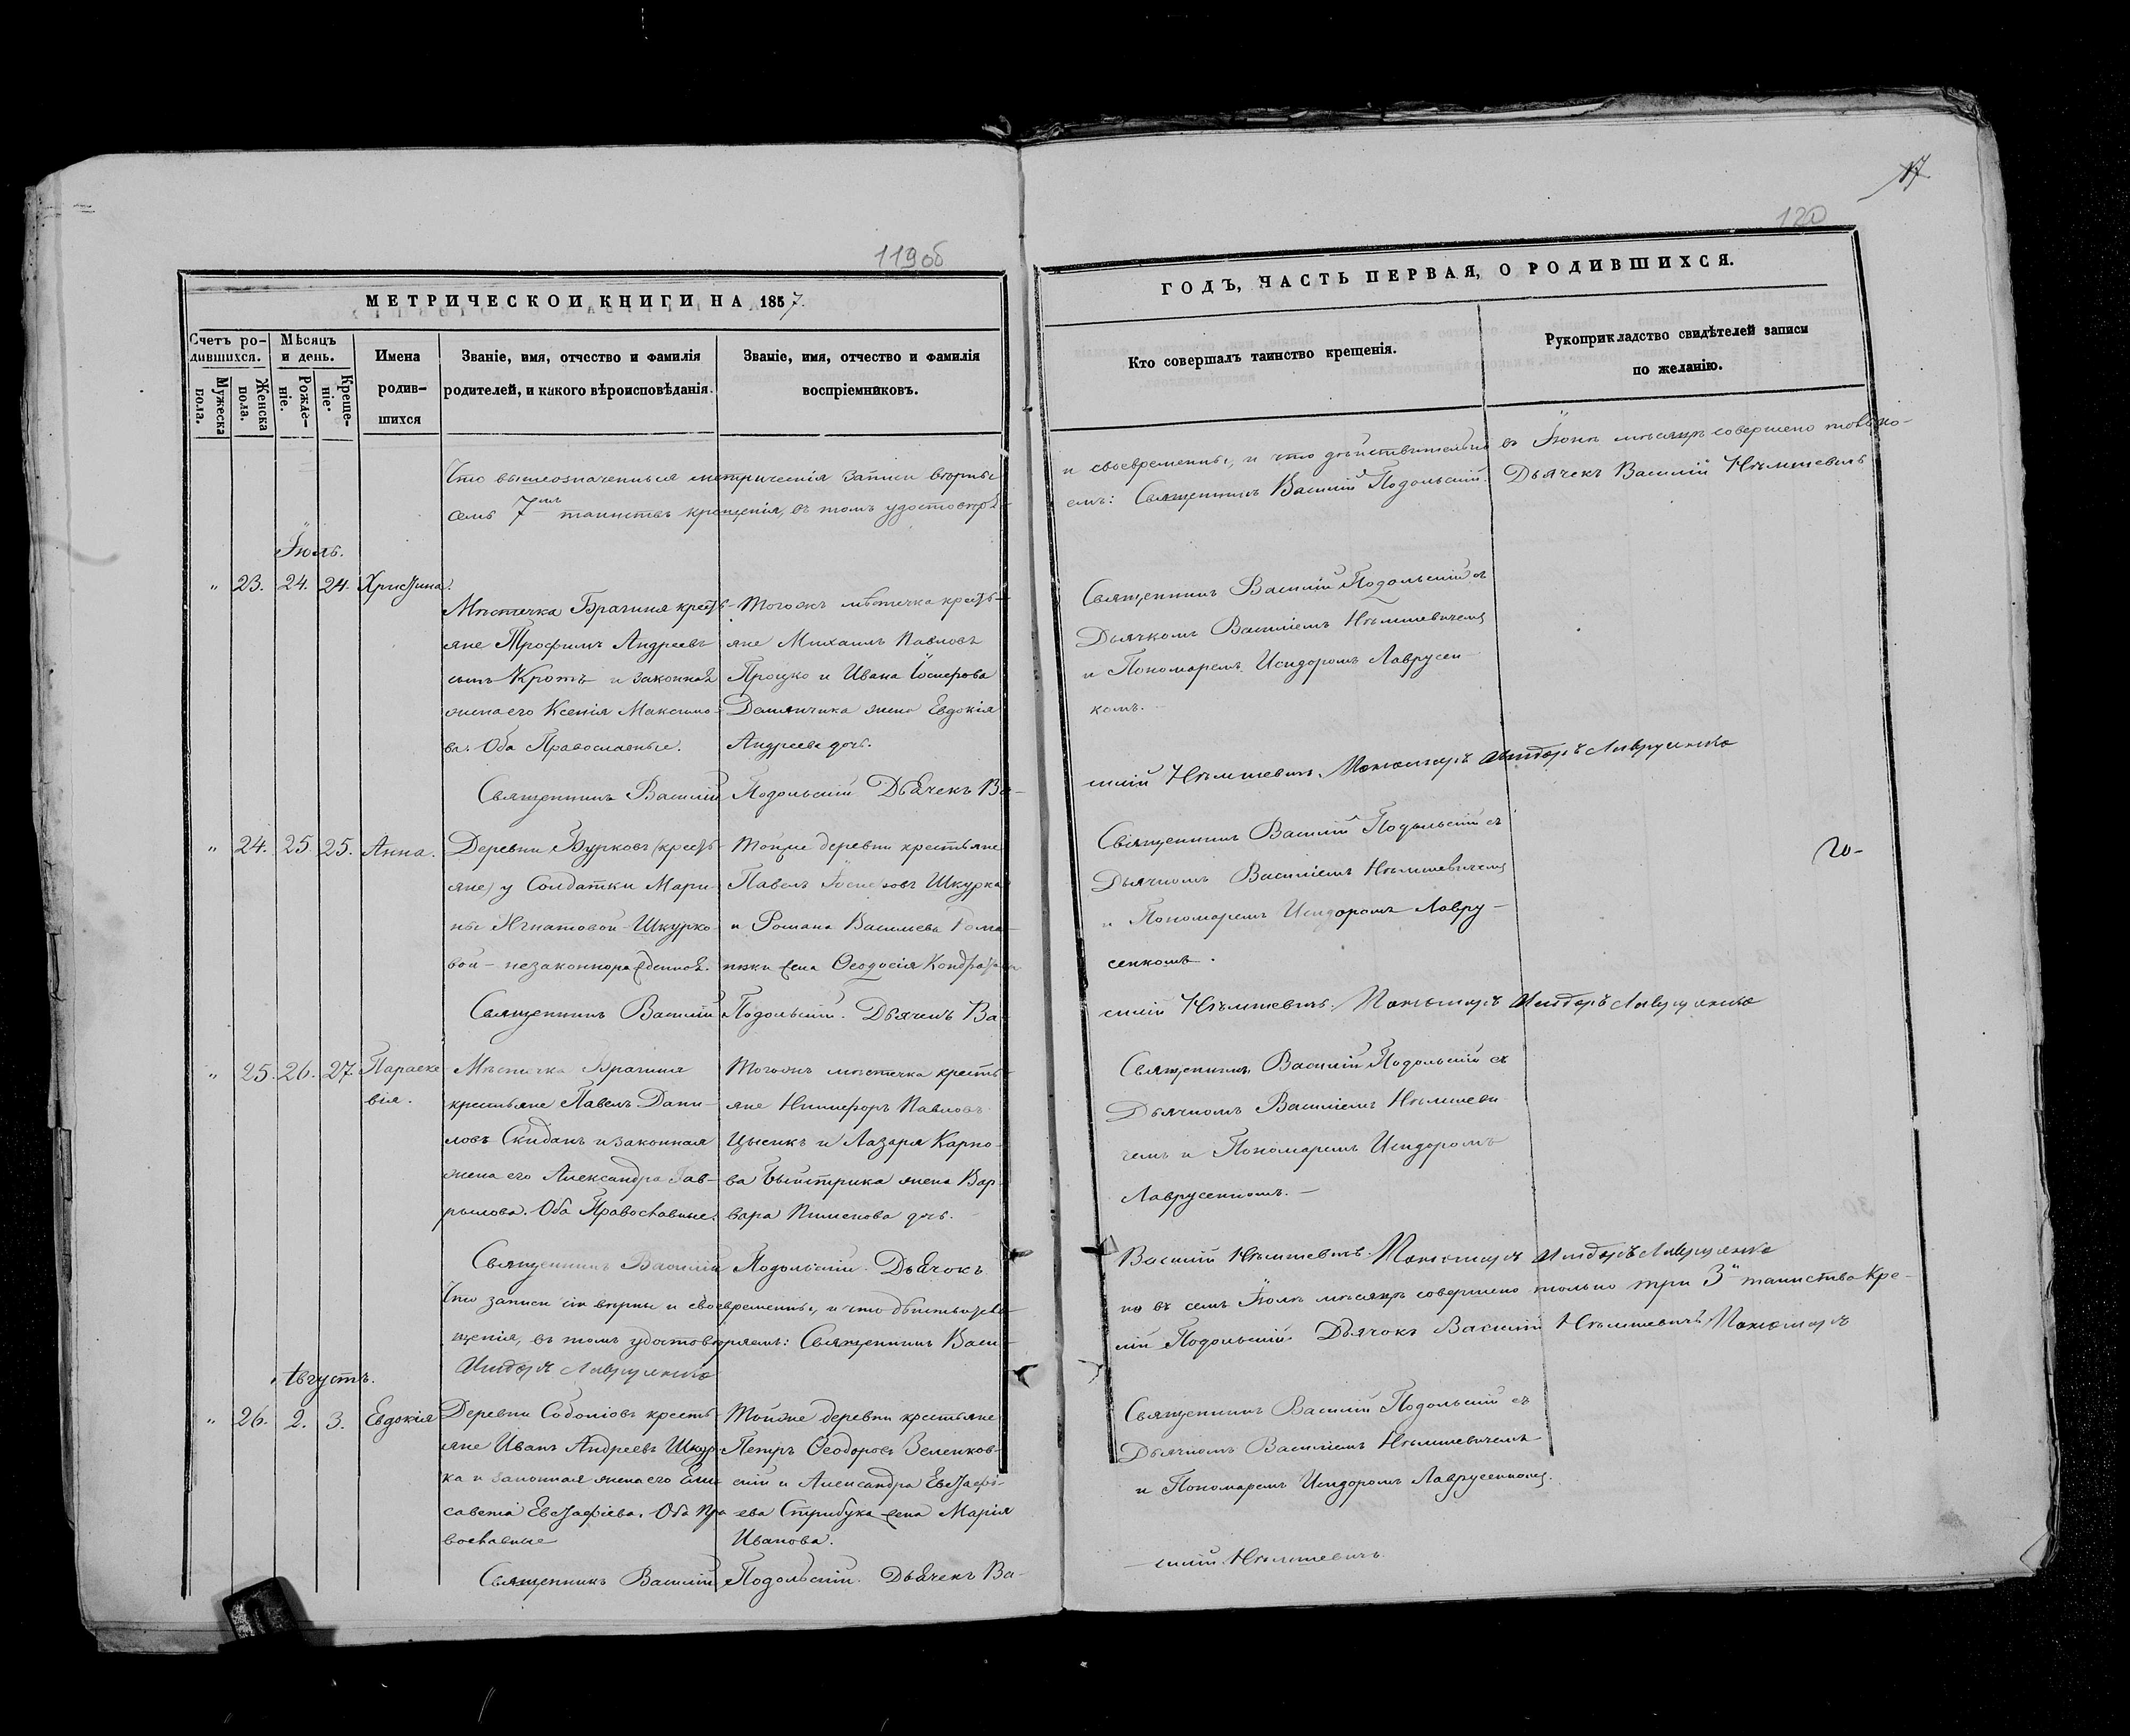 17
120
119об
МЕТРИЧЕСКОЙ КНИГИ НА 1857.
Счетъ родившихся.
Мужеска пола.
Женска пола.
Мѣсяцъ и день.
Рожденіе.
Крещеніе.
Имена родившихся
Званіе, имя, отчество и фамилія
родителей, и какого вѣроисповѣданія.
Званіе, имя, отчество и фамилія
воспріемниковъ.
Что вышеозначенныя метрическія записи вѣрны
семь 7мь таинствъ крещенія, въ томъ удостовѣря-
Іюль.
" 23. 24. 24. Христина.
Мѣстечка Брагиня кресть-
яне Трофимъ Андреевъ
сынъ Кротъ и законная
жена его Ксенія Максимо-
ва. Оба Православные.
Тогожъ мѣстечка кресть-
яне Михаилъ Павловъ
Процко и Ивана Іосифова
Демянчика жена Евдокія
Андреева дочь.
Священникъ Василій Подольскій Дьячекъ Ва-
" 24. 25. 25. Анна.
Деревни Бурковъ (кресть-
яне) у Солдатки Мари-
ны Игнатовой Шкурко-
вой - незаконнорожденная.
Тойже деревни крестьяне
Павелъ Іосифовъ Шкурка
и Романа Васильева
жена Ѳеодосія
Священникъ Василій Подольскій. Дьячекъ Ва-
" 25. 26. 27. Параске-
вія.
Мѣстечка Брагиня
крестьяне Павелъ Дани-
ловъ Скиданъ и законная
жена его Александра Гав-
рылова. Оба Православные.
Тогожъ мѣстечка кресть-
яне Никифоръ Павловъ
Цысикъ и Лазаря Карпо-
ва Быстрика жена Вар-
вара Пименова дочь.
Священникъ Василій Подольскій. Дьячокъ
Что записи сіи вѣрны и своевременны, и что дѣйствитель-
щенія, въ томъ удостовѣряемъ: Священникъ Васи-
Исидоръ Лаврусенко
Августъ.
" 26. 2. 3. Евдокія
Деревни Соболіовъ кресть-
яне Иванъ Андреевъ Шкур-
ка и законная жена его Ели-
савета Евстафіева. Оба Пра-
вославные
Тойже деревни крестьяне
Петръ Ѳеодоровъ Зеленков-
скій и Александра Евстафі-
ева Стрибука жена Марія
Иванова.
Священникъ Василій Подольскій. Дьячекъ Ва-
ГОДЪ, ЧАСТЬ ПЕРВАЯ, О РОДИВШИХСЯ.
Кто совершалъ таинство крещенія.
Рукоприкладство свидѣтелей записи
по желанію.
и своевременны, и что дѣйствительно въ Іюнѣ мѣсяцѣ совершено только-
емъ: Священникъ Василій Подольскій. Дьячекъ Василій Нѣмшевичъ
Священникъ Василій Подольскій съ
Дьячкомъ Василіемъ Нѣмшевичемъ
и Пономаремъ Исидоромъ Лаврусен-
комъ.
силій Нѣмшевичъ. Пономарь Исидоръ Лаврусенко
Священникъ Василій Подольскій съ
Дьячкомъ Василіемъ Нѣмшевичемъ
и Пономаремъ Исидоромъ Лавру-
сенкомъ.
силій Нѣмшевичъ. Пономарь Исидоръ Лаврусенко
Священникъ Василій Подольскій съ
Дьячкомъ Василіемъ Нѣмшеви-
чемъ и Пономаремъ Исидоромъ
Лаврусенкомъ.
Василій Нѣмшевичъ. Пономарь Исидоръ Лаврусенко
но въ семъ Іюлѣ мѣсяцѣ совершено только три 3 таинства Кре-
лій Подольскій. Дьячокъ Василій Нѣмшевичъ Пономарь
Священникъ Василій Подольскій съ
Дьячкомъ Василіемъ Нѣмшевичемъ
и Пономаремъ Исидоромъ Лаврусенкомъ.
силій Нѣмшевичъ.